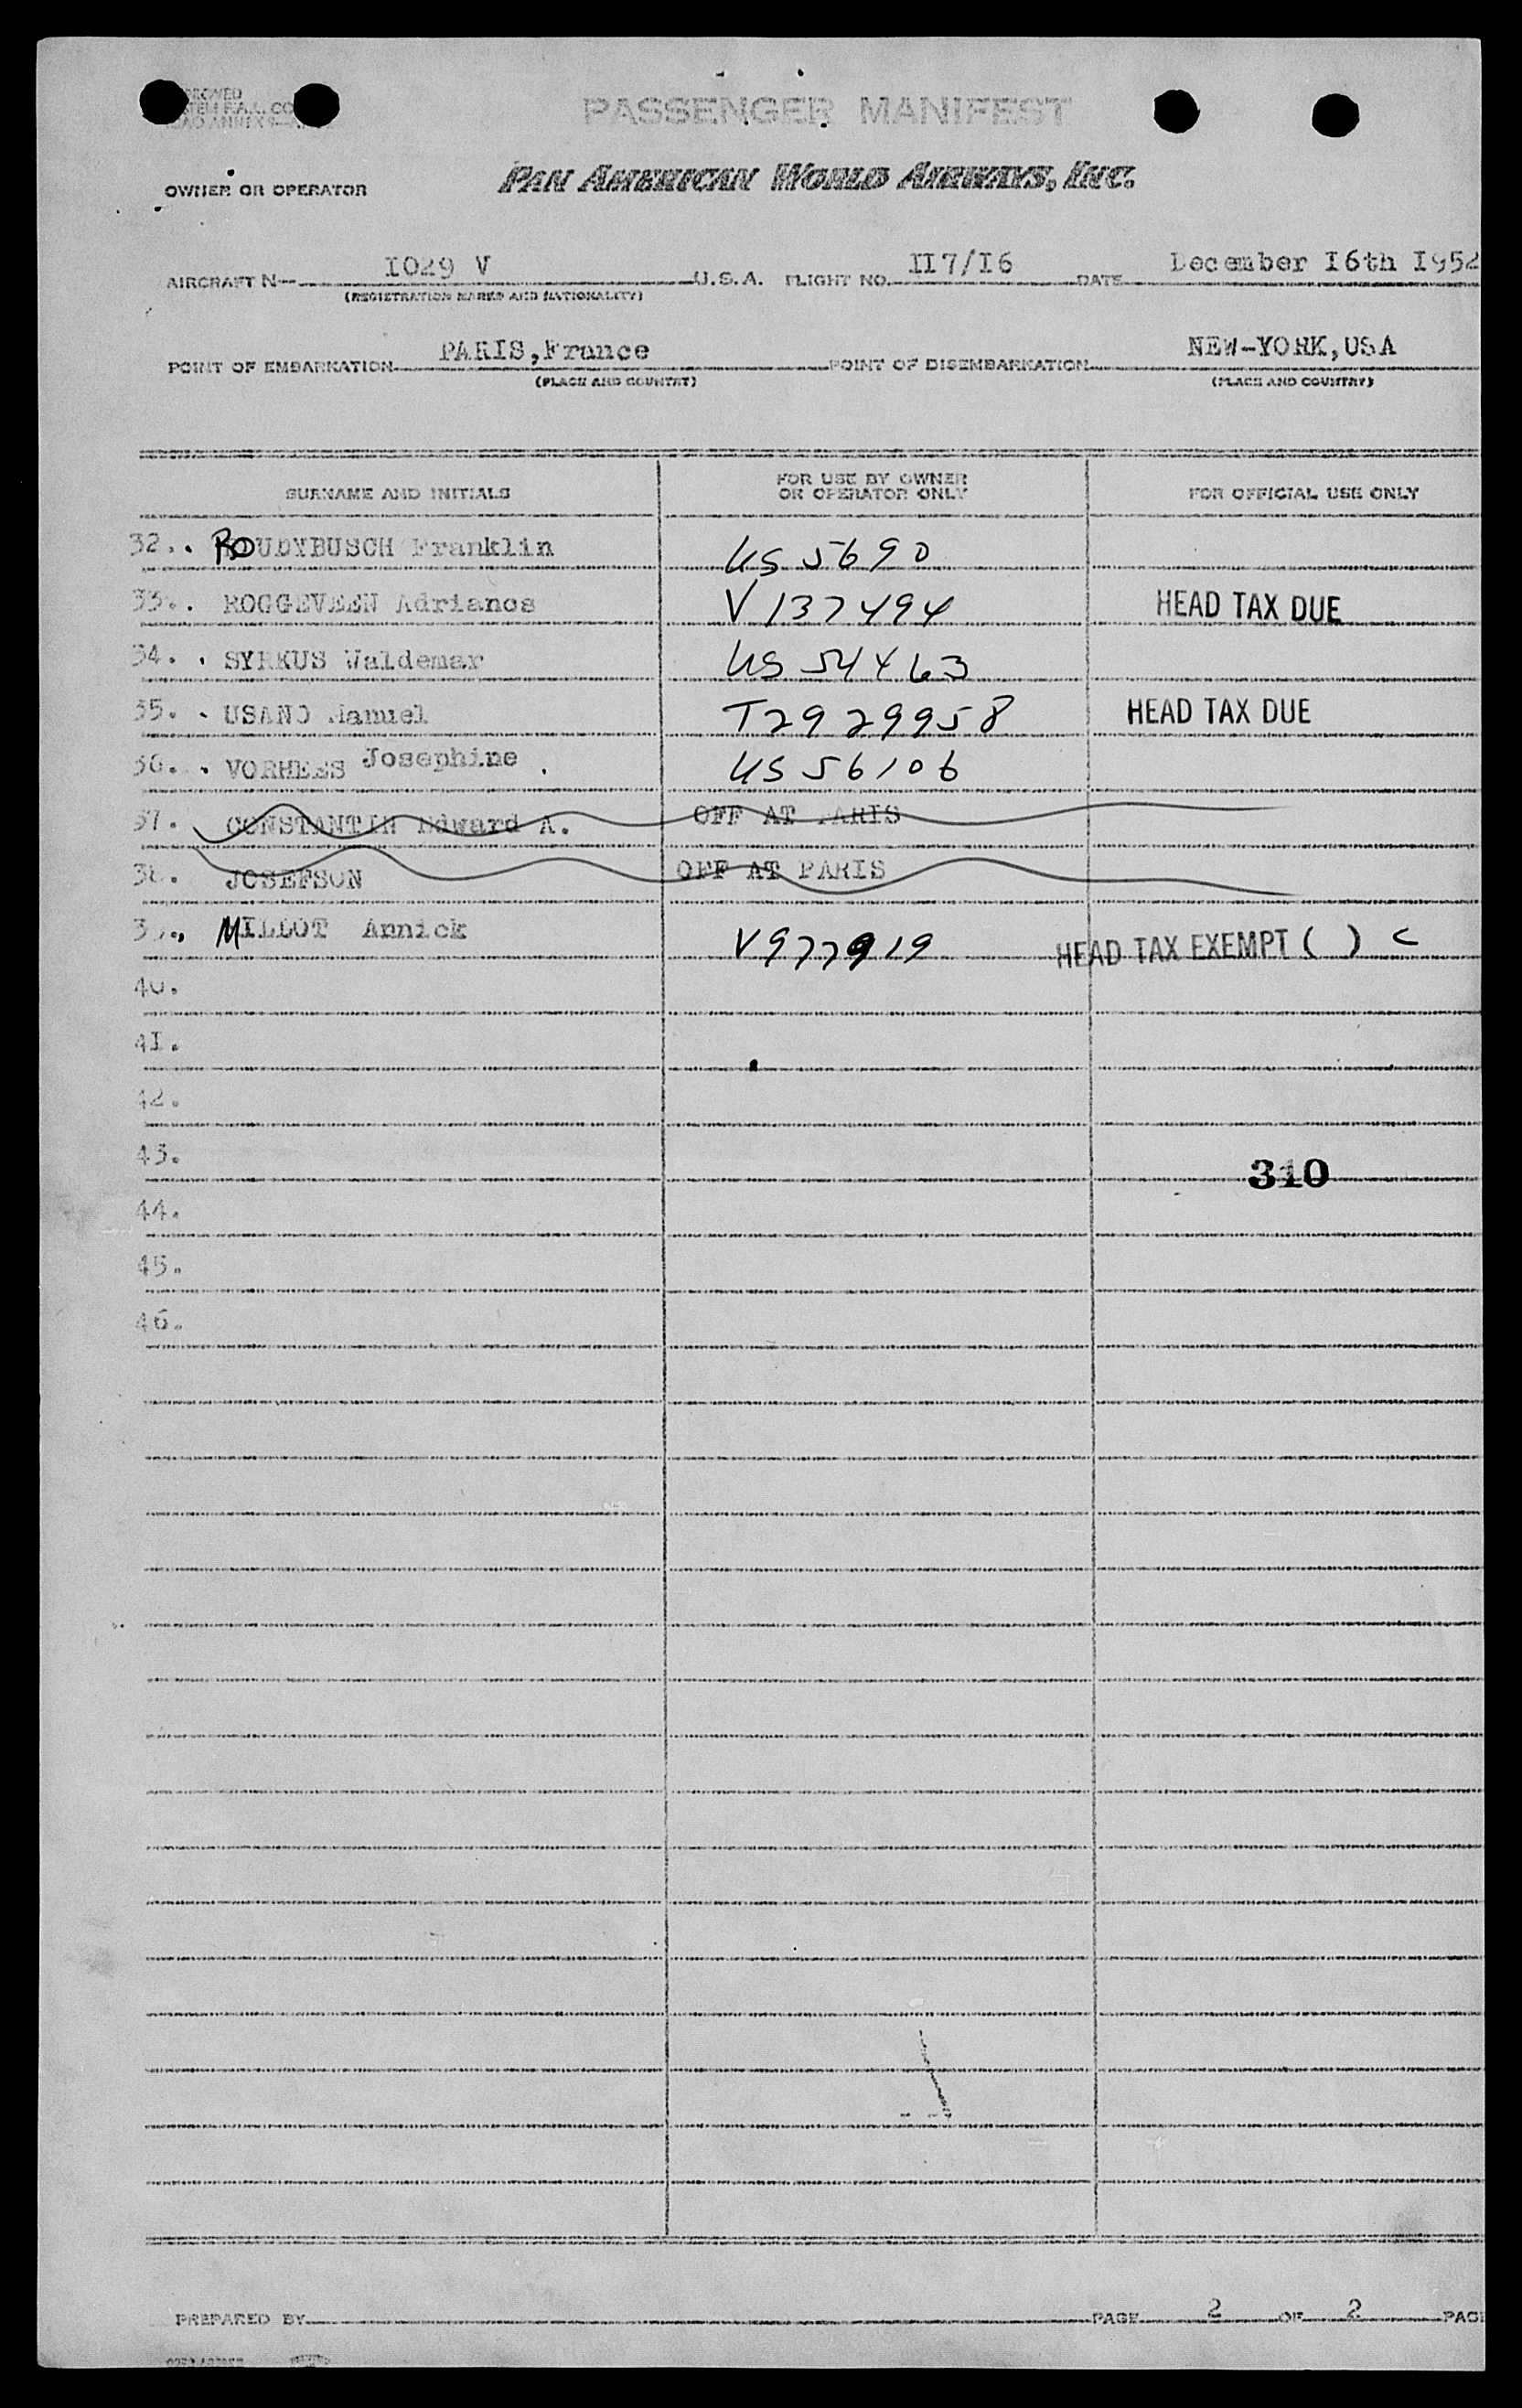 PASSENGER MANIFEST
OWNER OR OPERATOR PAN AMERICAN WORLD AIRWAYS, INC.
AIRCRAFT N— I029 V U.S.A. FLIGHT NO. II7/I6 DATE December I6th I952
(REGISTRATION MARKS AND NATIONALITY)
POINT OF EMBARKATION PARIS,France POINT OF DISEMBARKATION NEW-YORK,USA
(PLACE AND COUNTRY) (PLACE AND COUNTRY)
SURNAME AND INITIALS FOR USE BY OWNER OR OPERATOR ONLY FOR OFFICIAL USE ONLY
32. ROUDYBUSCH Franklin US 5690
33. ROGGEVEEN Adrianos V 137494 HEAD TAX DUE
34. SYRKUS Waldemar US 54463
35. USANO Manuel T2929958 HEAD TAX DUE
36. VORHEES Josephine US 56106
37. CONSTANTIN Edward A. OFF AT PARIS
38. JOSEFSON OFF AT PARIS
39. MILLOT Annick V977919 HEAD TAX EXEMPT ( ) C
40.
4I.
42.
43.
310
44.
45.
46.
PREPARED BY PAGE 2 OF 2